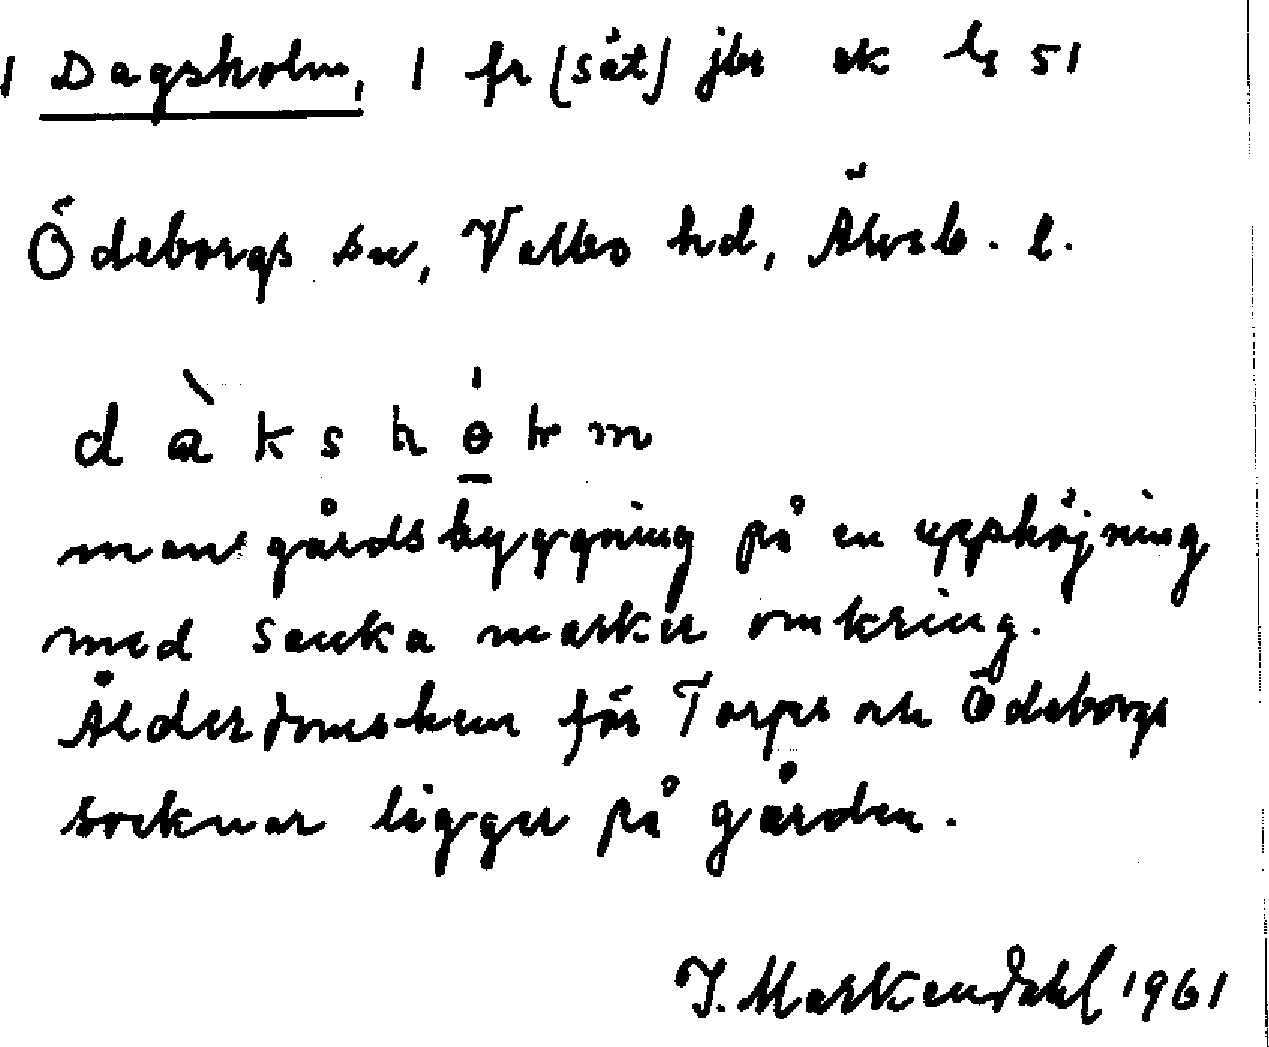 1 Dagsholm, 1 fr (sät) jbr ek bl 51
Ödeborgs sn, Valbo hd, Älvsb. l.
mangårdsbyggning på en upphöjning
med sanka marker omkring.
Ålderdomshem för Torps och Ödeborgs
socknar ligger på gården.
J. Markendahl 1961